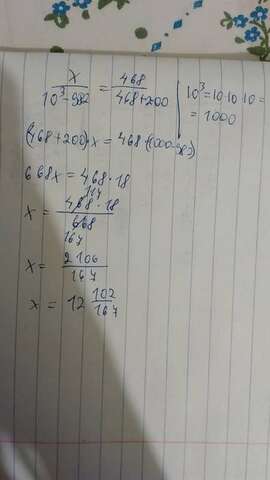 x/(10³-982) = 468/(468+200)
10³=10·10·10=
=1000
(468+200)·x=468·(1000-982)
668x=468·18
x = (468·18)/668
117
167
x= 2106/167
x = 12 102/167